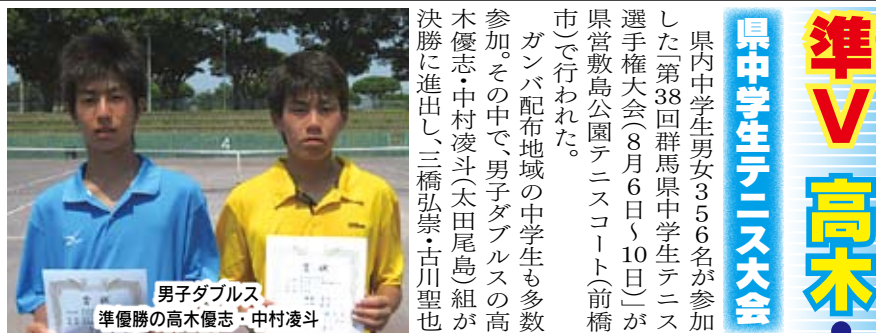 準V 高木・
県中学生テニス大会
県内中学生男女356名が参加
した「第38回群馬県中学生テニス
選手権大会(8月6日〜10日)」が
県営敷島公園テニスコート(前橋
市)で行われた。
ガンバ配布地域の中学生も多数
参加。その中で、男子ダブルスの高
木優志・中村凌斗(太田尾島)組が
決勝に進出し、三橋弘崇・古川聖也
男子ダブルス
準優勝の高木優志・中村凌斗
4
賞状